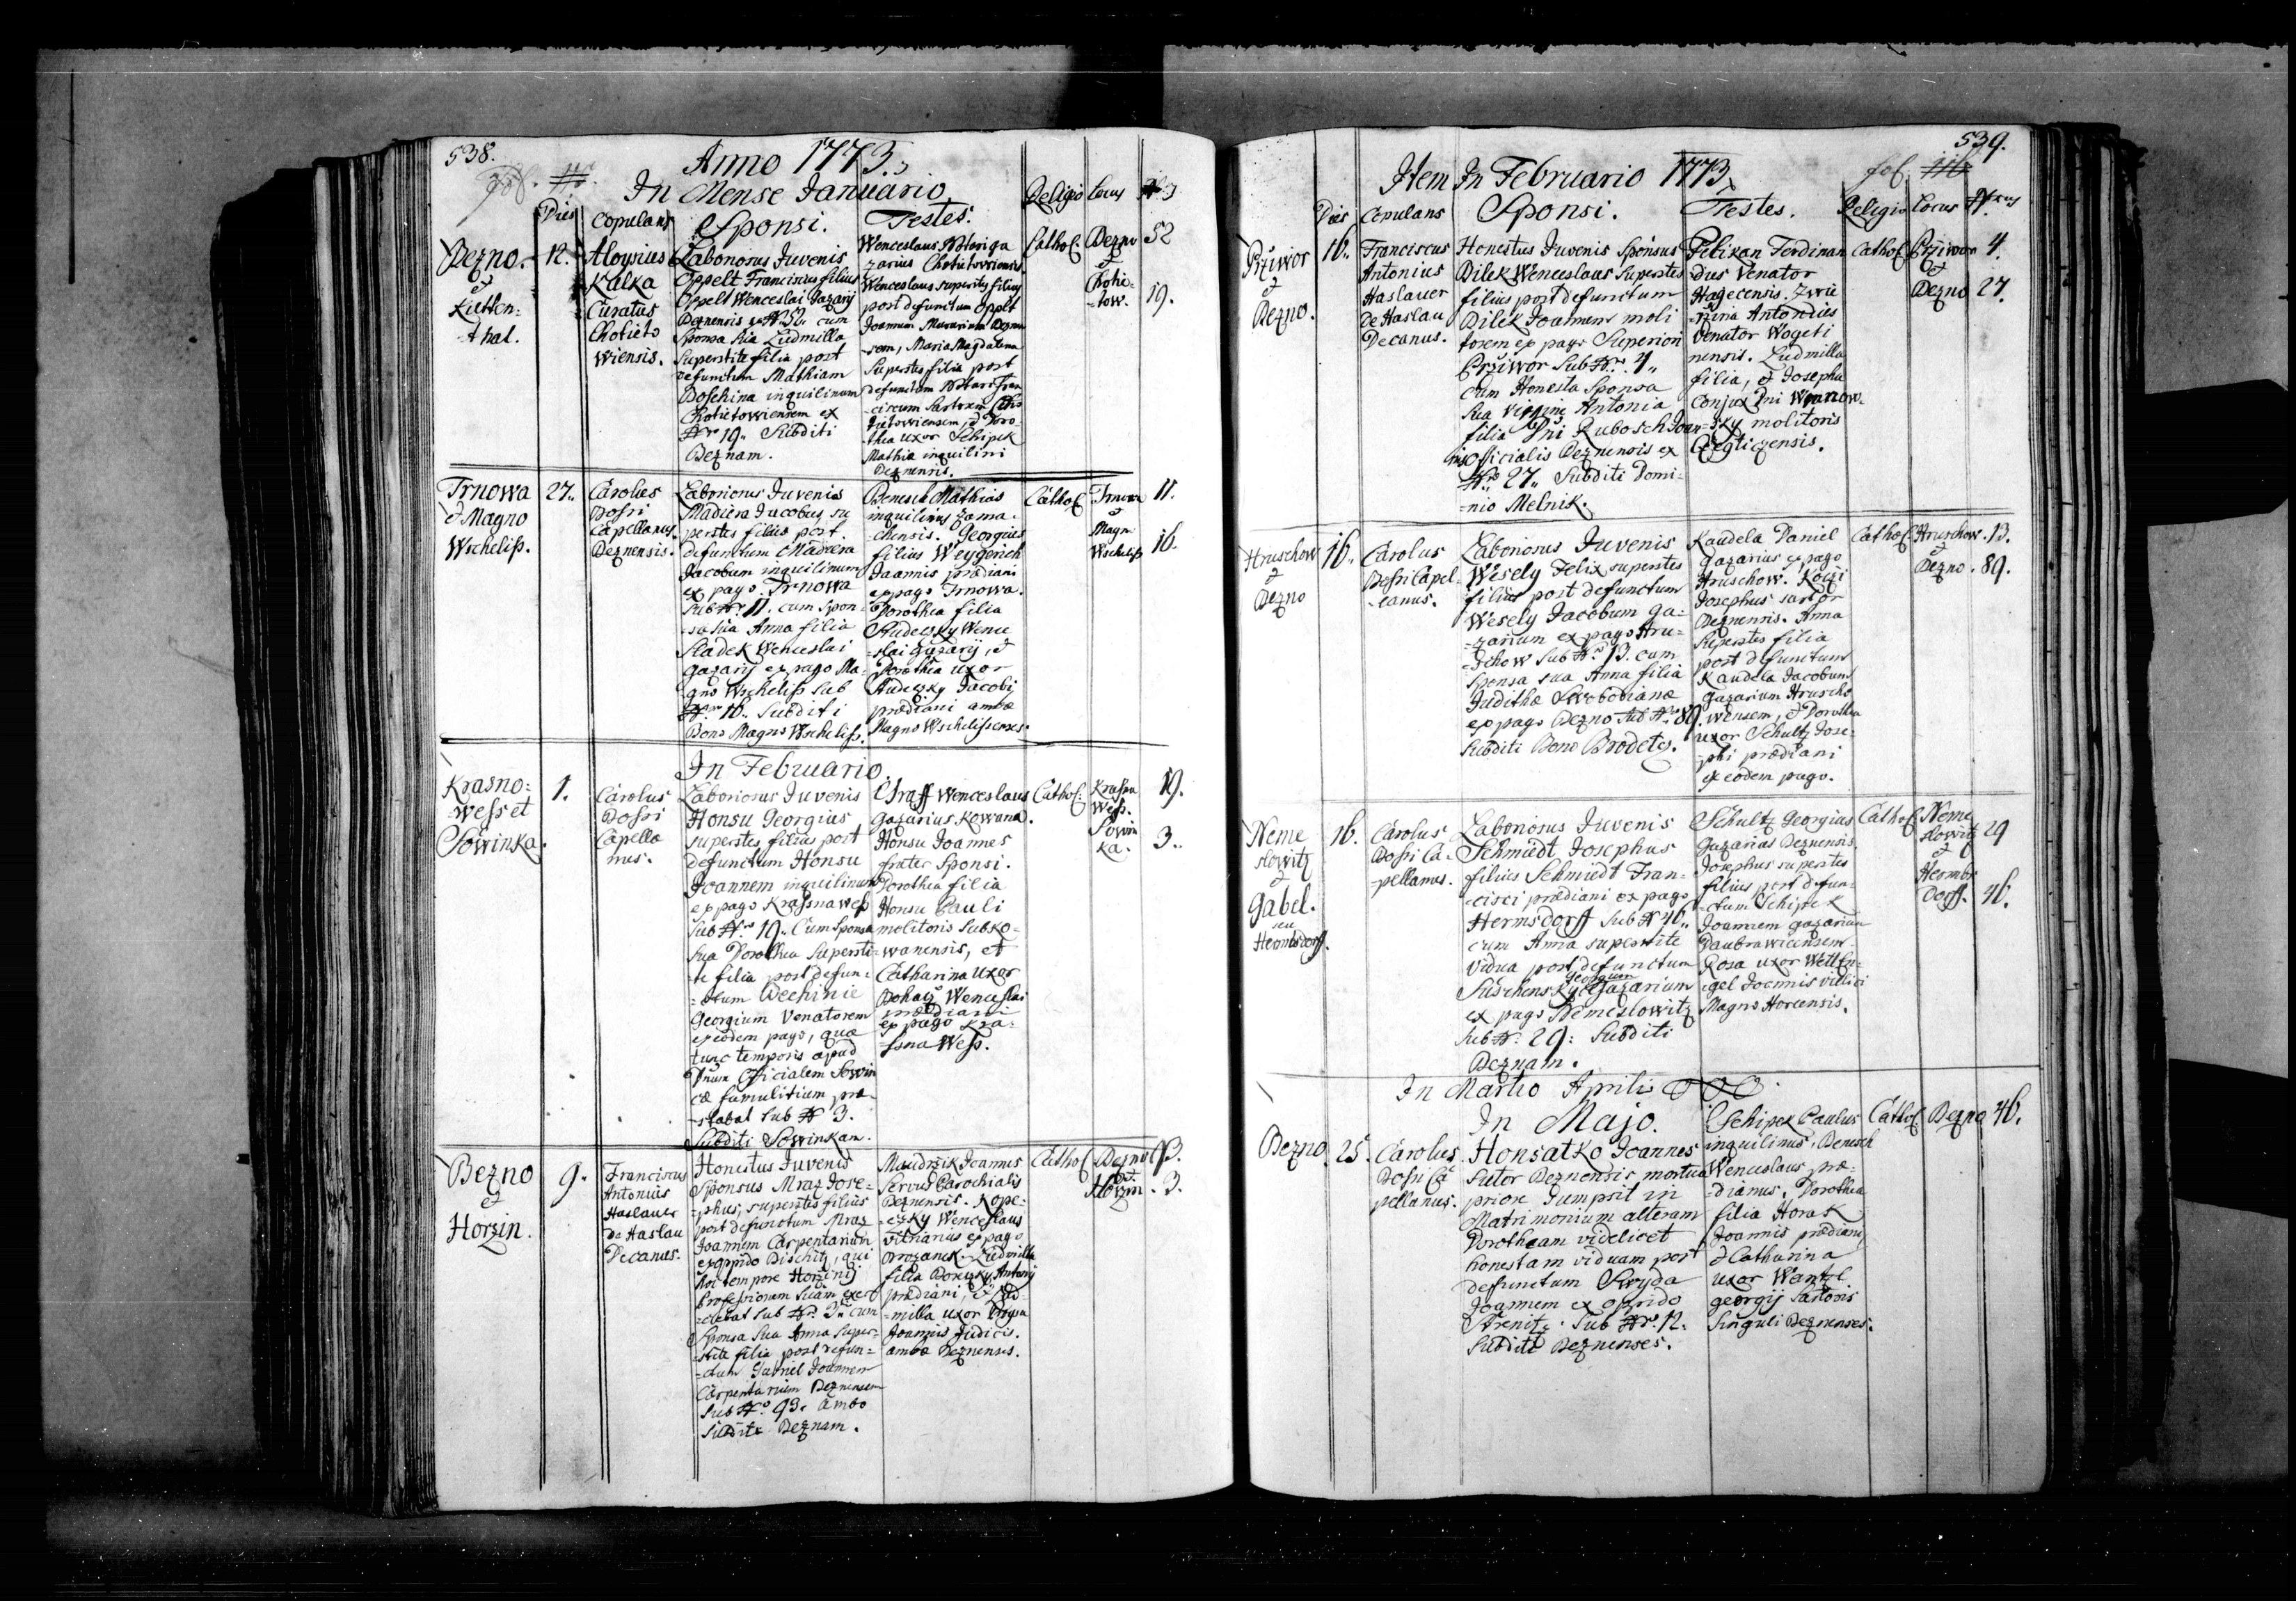 538.
Anno 1773.
In Mense Januario
Dies Copulans Sponsi. Testes. Religio Locus Nrus
Bezno.
et
Kutten-
-thal.
12.
Aloysius
Kalka
Curatus
Chotieto
wiensis.
Laboriosus Juvenis
Oppelt Franciscus filius
Oppelt Wenceslai Gazarij
Beznensis ex Nr. 52. cum
Sponsa sua Ludmilla
Superstite filia post
defunctum Mathiam
Doschina inquilinum
Chotietowiensem ex
Nro 19. Subditi
Beznam.
Wenceslaus
zarius Chotietowiensis.
Wenceslaus superstes filius
post defunctum Oppelt
Joannem Murarium Bezne
-sem, Maria Magdalena
Superstes filia post
defunctum Fran
-ciscum Sartorem Cho
tietowiensem, et Doro-
thea uxor Schipek
Mathiæ inquilini
Beznensis.
Cathol.
Bezno
et
Chotie-
-tow.
52
19.
Trnowa
et Magno
Wscheliß.
27.
Carolus
Dofri
Capellanus
Beznensis.
Laboriosus Juvenis
Madiera Jacobus su
perstes filius post.
defunctum Madiera
Jacobum inquilinum
ex pago Trnowa
sub Nr 11. cum Spon-
-sa sua Anna filia
Sladek Wenceslai
Gazarij ex pago Ma-
gno Wscheliß sub
Nro 16. Subditi
Bono Magno Wscheliß.
Benesch Mathias
inquilinus Zama-
-chensis. Georgius
filius Weygerich
Joannis prædiani
ex pago Trnowa.
Dorothea filia
Studeczky Wence
slai Gazarij, et
Dorothea uxor
Studeczky Jacobi
prædiani ambæ
Magno Wschelißenses.
Cathol
Trnowa
et
Magn.
Wscheliß
11.
16.
In Februario
Krasno-
-wess et
Sowinka.
1.
Carolus
Dofri
Capella
nus.
Laboriosus Juvenis
Honsu Georgius
superstes filius post
defunctum Honsu
Joannem inquilinum
ex pago Krassnawes
sub Nro 19. Cum Sponsa
sua Dorothea Supersti-
te filia post defun-
-ctum Wechinie
Georgium Venatorem
ex eodem pago, quæ
tunc temporis apud
Dnum Officialem Sowin
cæ famulitium præ-
-stabat sub N 3.
Subditi Sowinkam.
Graff Wenceslaus
Gazarius Kowana.
Honsu Joannes
frater Sponsi.
Dorothea filia
Honsu Pauli
molitoris Subko-
wanensis, et
Catharina uxor
Bohaty Wenceslai
prædiani
ex pago Kra-
-ssna Wess.
Cathol:
Krassna
Wess.
Sowin
ka.
19.
3.
Bezno
et
Horzin.
9.
Franciscus
Antonius
Haslauer
de Haslau
Decanus.
Honestus Juvenis
Sponsus Mraz Jose-
-phus, superstes filius
post defunctum Mraz
Joannem Carpentarium
ex oppido Bischitz, qui
hoc tempore Horzinij
Professionem suam exer
-cebat sub Nro. 3tio cum
Sponsa Sua Anna Super-
stite filia post defun-
-ctum Gabriel Joannem
Carpentarium Beznensem
sub Nro. 93. ambo
subditi Beznam.
Maudrzik Joannes
Servus Parochialis
Beznensis. Kope-
-czky Wenceslaus
vitriarius ex pago
Drozanek. Ludmilla
filia Antonij
prædiani, et Lud-
-milla uxor
Joannis Judicis.
ambæ Beznenses.
Cathol
Bezno
et
Horzin.
93.
3.
539.
Item In Februario 1773
fol.
Dies Copulans Sponsi. Testes. Religio Locus Nrus
Przivor
et
Bezno.
16.
Franciscus
Antonius
Haslauer
de Haslau
Decanus.
Honestus Juvenis Sponsus
Bilek Wenceslaus Superstes
filius post defunctum
Bilek Joannem moli
torem ex pago Superiori
Przivor Sub Nr. 4.
cum Honesta Sponsa
sua virgine Antonia
filia Dni Rubosch Joan
nis Officialis Beznensis ex
Nro. 27. Subditi Domi-
=nio Melnik.
Pelikan Ferdinan
dus Venator
Hagecensis. Zwie
-rzina Antonius
Venator Wogeti
nensis. Ludmilla
filia, et Josepha
Conjux Dni Wranow-
-sky molitoris
Cathol
Przivor
et
Bezno
4.
27.
Hruschow
et
Bezno
16.
Carolus
Dofri Capel-
-lanus.
Laboriosus Juvenis
Wesely Felix superstes
filius post defunctum
Wesely Jacobum Ga-
-zarium ex pago Hru-
-schow sub Nr. 13. cum
sponsa sua Anna filia
Judithæ Swobodianæ
ex pago Bezno sub Nr. 89.
Subditi Bono Brodetz.
Kaudela Daniel
Gazarius ex pago
Hruschow. Koczi
Josephus sartor
Beznensis. Anna
superstes filia
post defunctum
Kaudela Jacobum
Gazarium Hruscho
wensem, et Dorothea
uxor Schultz Jose-
phi prædiani
ex eodem pago.
Cathol
Hruschow.
et
Bezno.
13.
89.
Neme
slowitz
et
Gabel.
seu
Hermsdorff.
16.
Carolus
Dofri Ca-
-pellanus.
Laboriosus Juvenis
Schmiedt Josephus
filius Schmiedt Fran-
-cisci prædiani ex pago
Hermsdorff sub N 46.
cum Anna superstite
vidua post defunctum
Georgium
Suschensky Gazarium
ex pago Nemeslowitz
sub N. 29: Subditi
Beznam.
Schultz Georgius
Gazarius Beznensis.
Josephus superstes
filius post defun-
-ctum Schipek
Joannem gazarium
Daubrawicensem.
Rosa uxor Wetten-
-gel Joannis villici
Magno Horcensis.
Cathol
Neme
slowitz
et
Herms
dorff.
29
46.
In Martio Aprilis
In Majo.
Bezno.
25.
Carolus
Dofri Ca
pellanus.
Honsatko Joannes
Sutor Beznensis mortua
priore sumpsit in
Matrimonium alteram
Dorotheam videlicet
honestam viduam post
defunctum Swyda
Joannem ex oppido
Strenitz. sub Nro. 12.
Subditi Beznenses.
Schipek Paulus
inquilinus, Benesch
Wenceslaus præ-
-dianus, Dorothea
filia Horak
Joannis prædiani
et Catharina
uxor Wantzl
georgij Sartoris
Singuli Beznenses.
Cathol
Bezno
46.